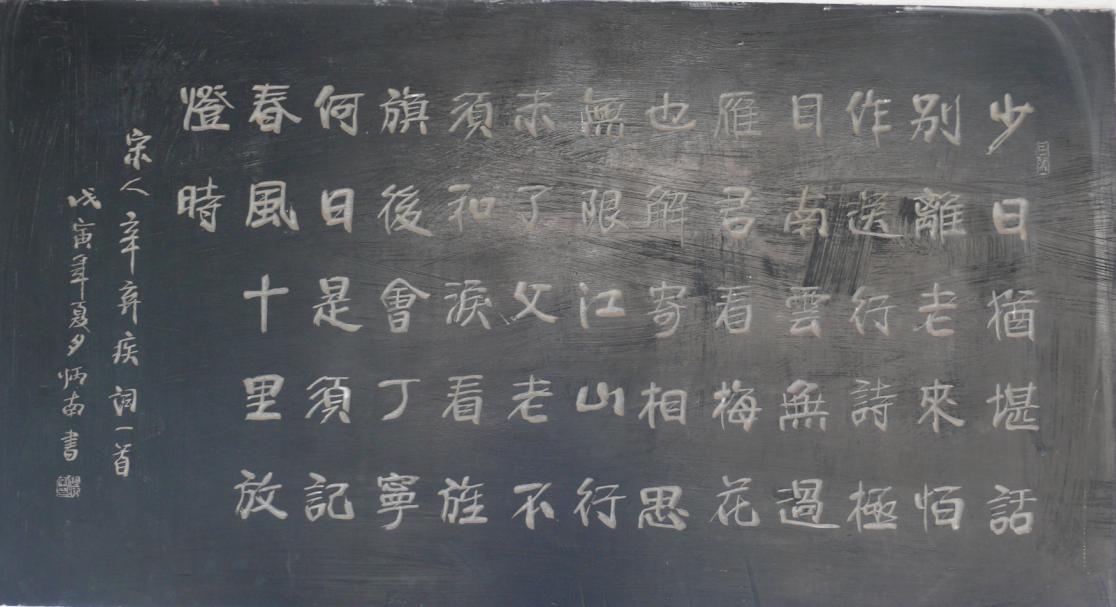 少日猶堪話
別離老來怕
作送行詩極
目南雲無過
雁君看梅花
也解寄相思
無限江山行
未了父老不
須和淚看旌
旗後會丁寧
何日是須記
春風十里放
燈時
宋人辛弃疾詞一首
戊寅年夏夕炳南書